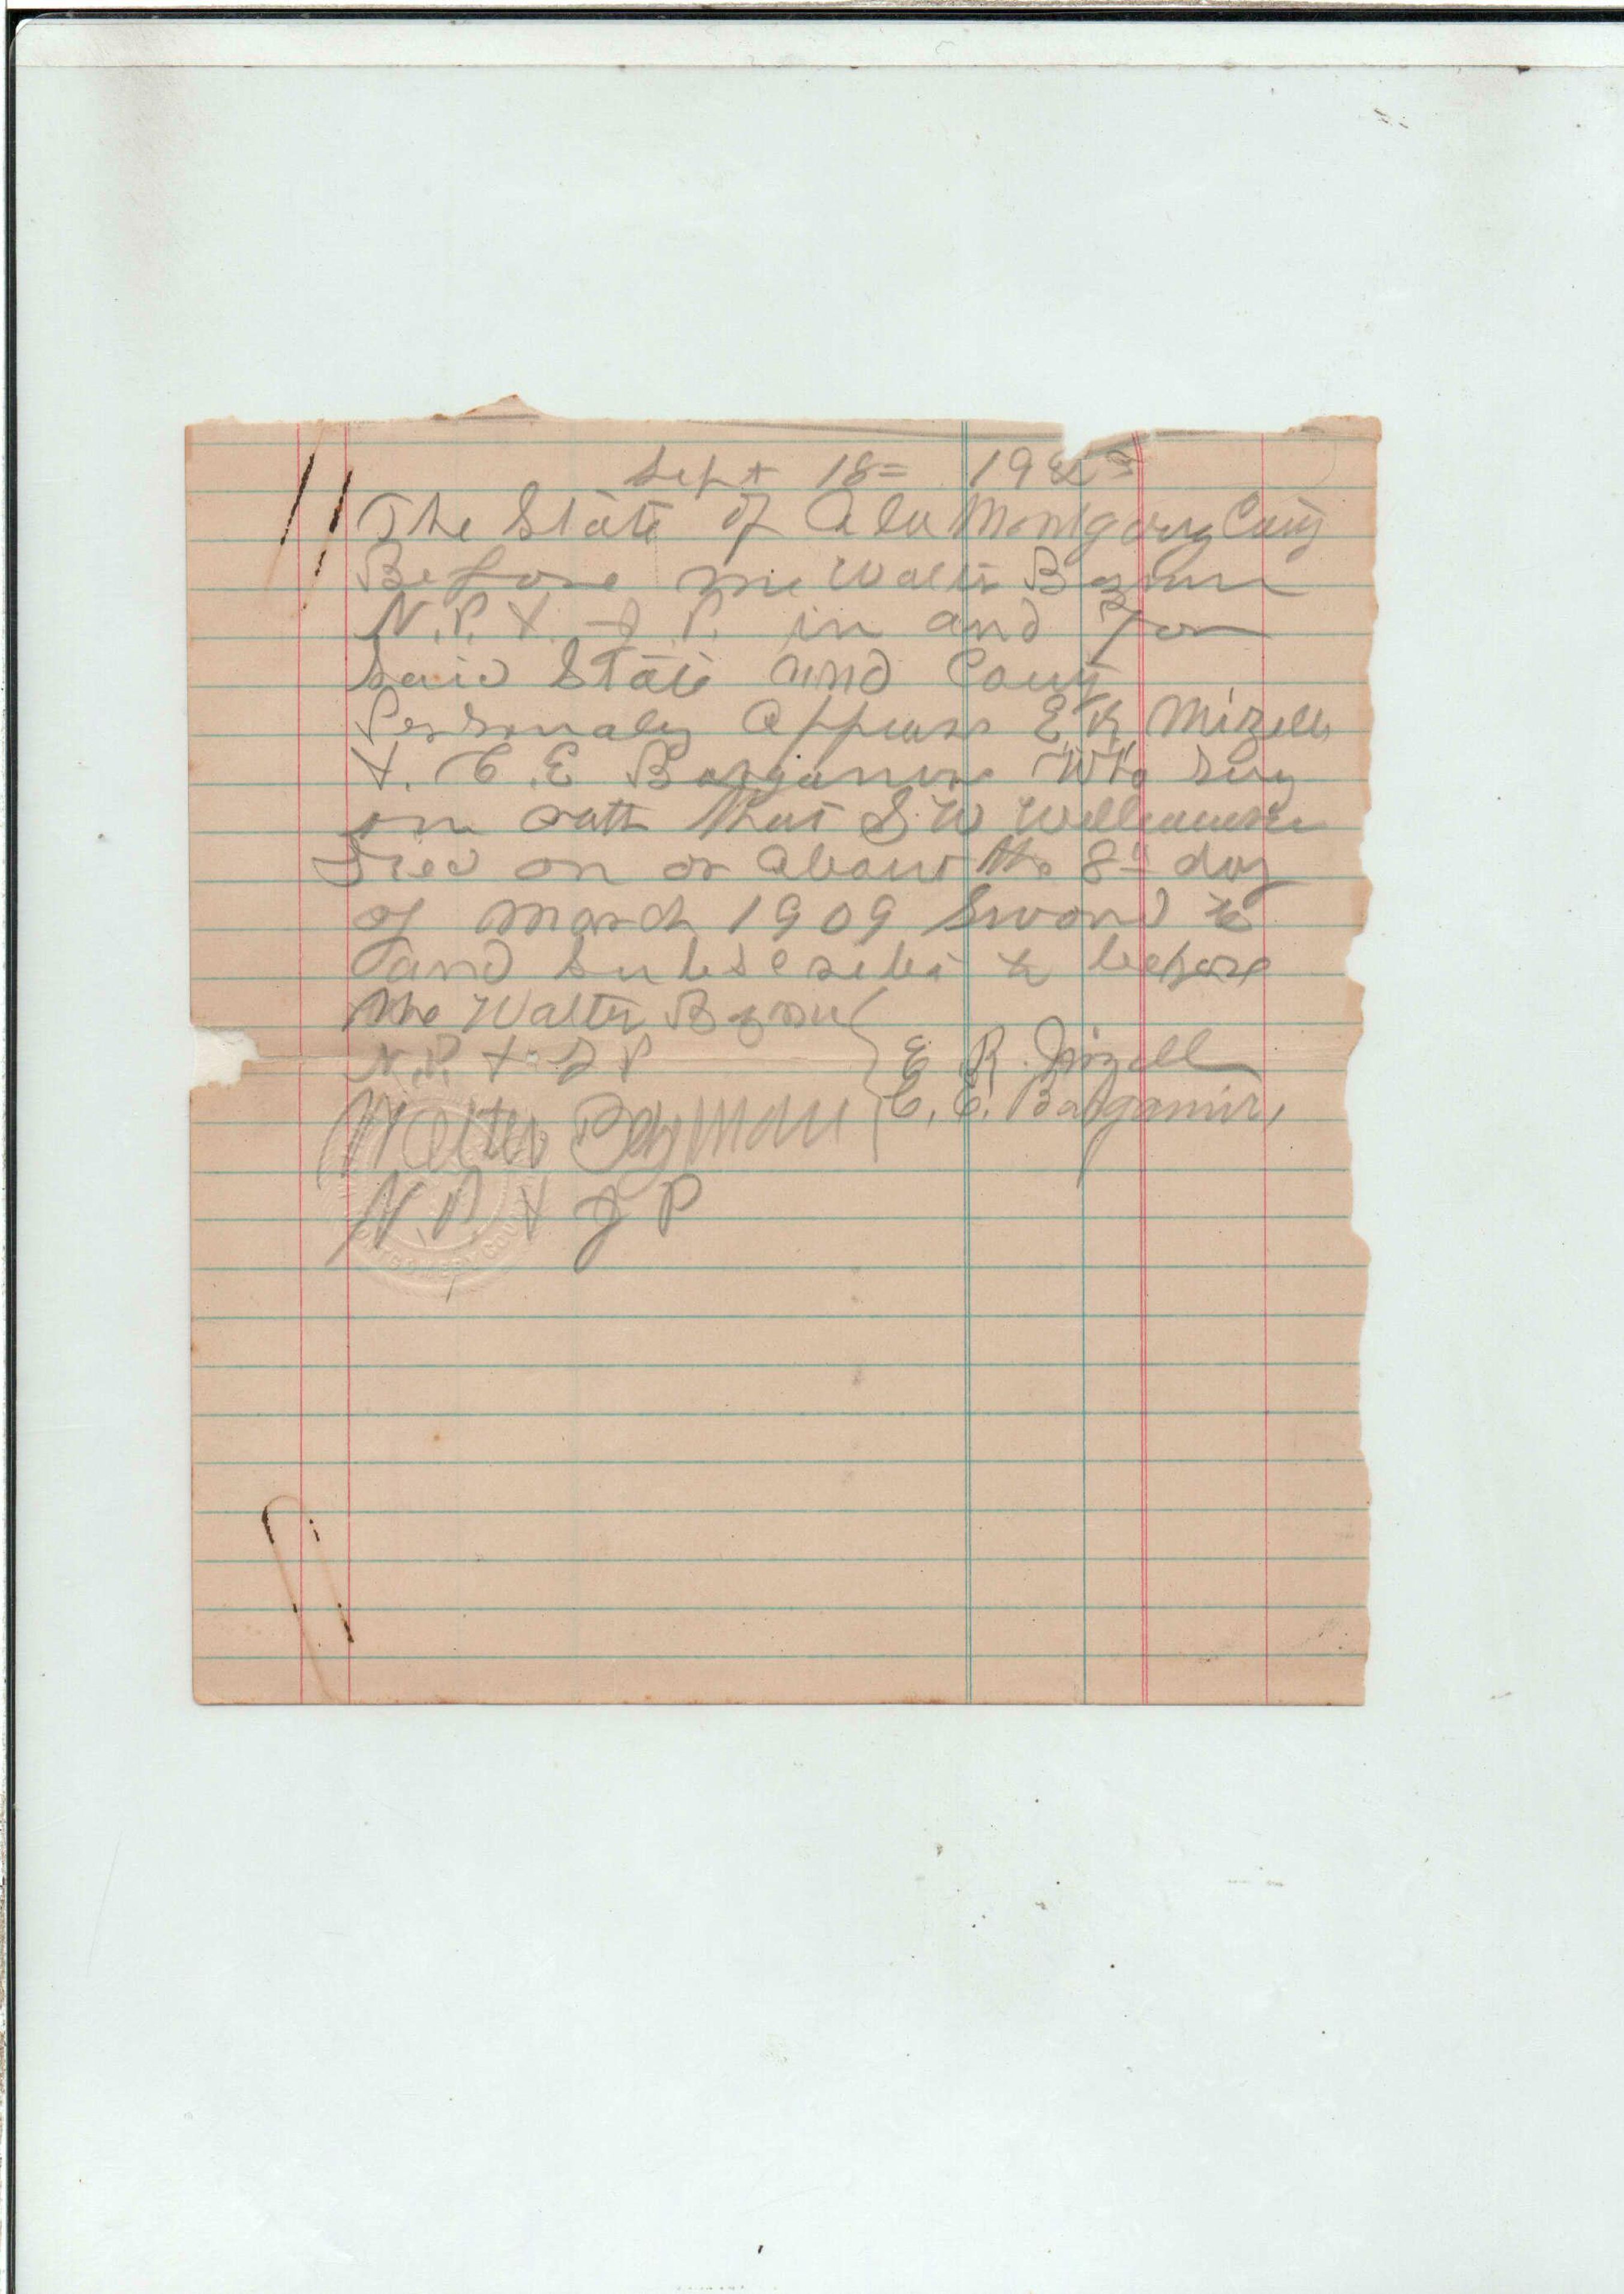 Sept 18= 19
The State of Ala Montgomery County
Before me Walter Bozman
N.P. & J.P. in and for
Said State and County
Personaly Appears E.R. Mizell
&. C.E Barganier Who Say
on oath that S.W Williamson
Died on or about the 8th day
of March 1909 Sword to
and Subscribe to before
Me Walter Bozman
N.P. & J P
E R. Mizell
C. E. Barganier,
Walter Bozman
N.P. & J P
MONTGOMERY COU